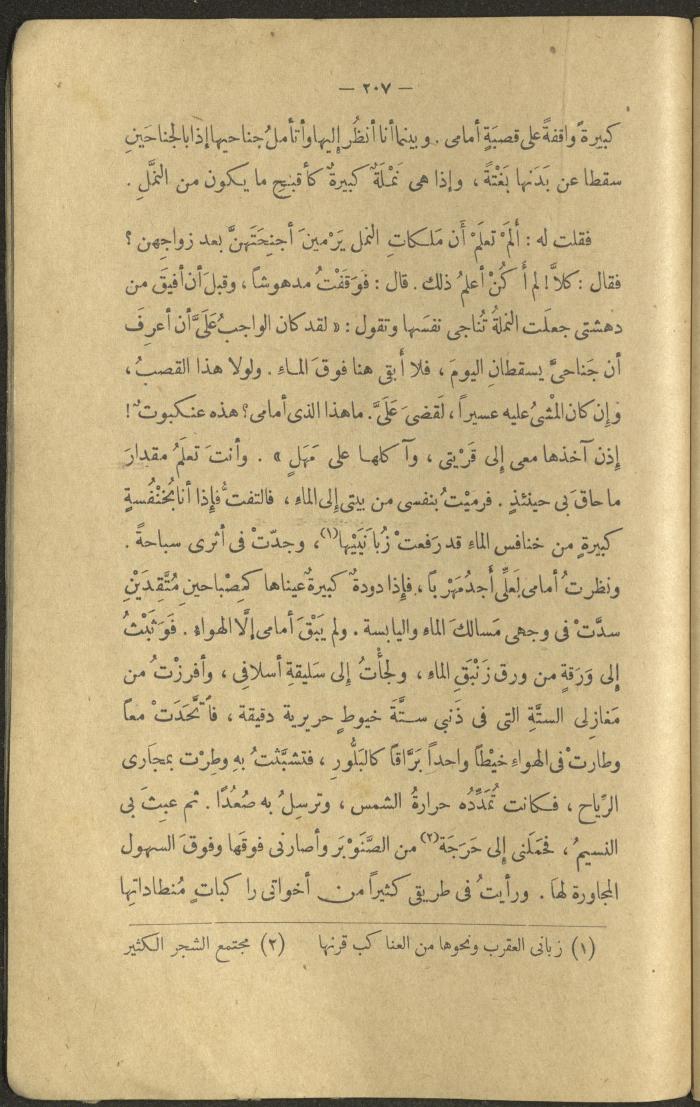 — ٢٠٧ —
كبيرةً واقفةً على قصبَةٍ أمامى . وبينما أنا أنظُر إليها وأتأملُ جناحيها إذا بالجناحَينِ
سقطا عن بَدَنها بَغْتَةً ، وإذا هى نَمْلَةٌ كبيرةٌ كأقبحِ ما يكون من النَّملِ .
فقلت له : أَلَمْ تعلَمْ أَن مَلَكاتِ النمل يَرْمينَ أجنِحَتَهنَّ بعد زواجِهن ؟
فقال : كلاَّ ! لم أَكُنْ أعلمُ ذلك . قال : فوَقَفْتُ مدهوشاً ، وقبلَ أن أفيقَ من
دهشتى جعلَت النملةُ تُناجى نفسَها وتقول : « لقد كان الواجبُ عَلَىَّ أن أعرِفَ
أن جَناحىَّ يسقطانِ اليومَ ، فلا أَبقى هنا فوقَ الماءِ . ولولا هذا القصبُ ،
وإن كان المْشىُ عليه عسيراً ، لَقضىَ عَلَىَّ . ما هذا الذى أمامى ؟ هذه عنكبوتٌ !
إذن آخذها معى إلى قَرْيتى ، وآكلها على مَهَلٍ » . وأنتَ تعلَمُ مقدارَ
ما حاقَ بى حينئذٍ . فرميْتُ بنفسى من بيتى إلى الماءِ ، فالتفتُّ فإذا أنا بخُنْفُسةٍ
كبيرةٍ من خنافس الماءِ قد رَفعتْ زُبانَيَيْها(١) ، وجدّتْ فى أثرى سباحةً .
ونظرتُ أمامى لَعلِّى أَجدُ مَهْرَباً ، فإذا دودةٌ كبيرةٌ عيناها كمِصْباحينِ مُتَّقِدَيْنِ
سدَّتْ فى وجهى مَسالكَ الماءِ واليابسة . ولم يَبْقَ أمامى إلَّا الهواءِ . فَوَثَبْتُ
إلى وَرَقةٍ من ورق زَنْبَقِ الماءِ ، ولجأْتُ إلى سَليقةِ أسلافى ، وأفرزْتُ من
مَغازلى الستَّةِ التى فى ذَنَبى ستَّةَ خيوطٍ حريرية دقيقة ، فاتَّحَدَتْ معاً
وطارتْ فى الهواءِ خيْطاً واحداً بَرَّاقاً كالبَلُّورِ ، فتشبَّثتُ بهِ وطِرْت بمجارى
الرِّياح ، فكانت تُمَدِّدُه حرارةُ الشمس ، وترسِلُ به صُعُدًا . ثم عبِثَ بى
النسيمُ ، فحَمَلَنى إلى حَرَجَة(٢) من الصَّنَوْبَر وأصارنى فوقَها وفوقَ السهول
المجاورة لها . ورأيتُ فى طريقى كثيراً من أخواتى راكباتٍ مُنطاداتِها
(١) زبانى العقرب ونحوها من العناكب قرنها (٢) مجتمع الشجر الكثير